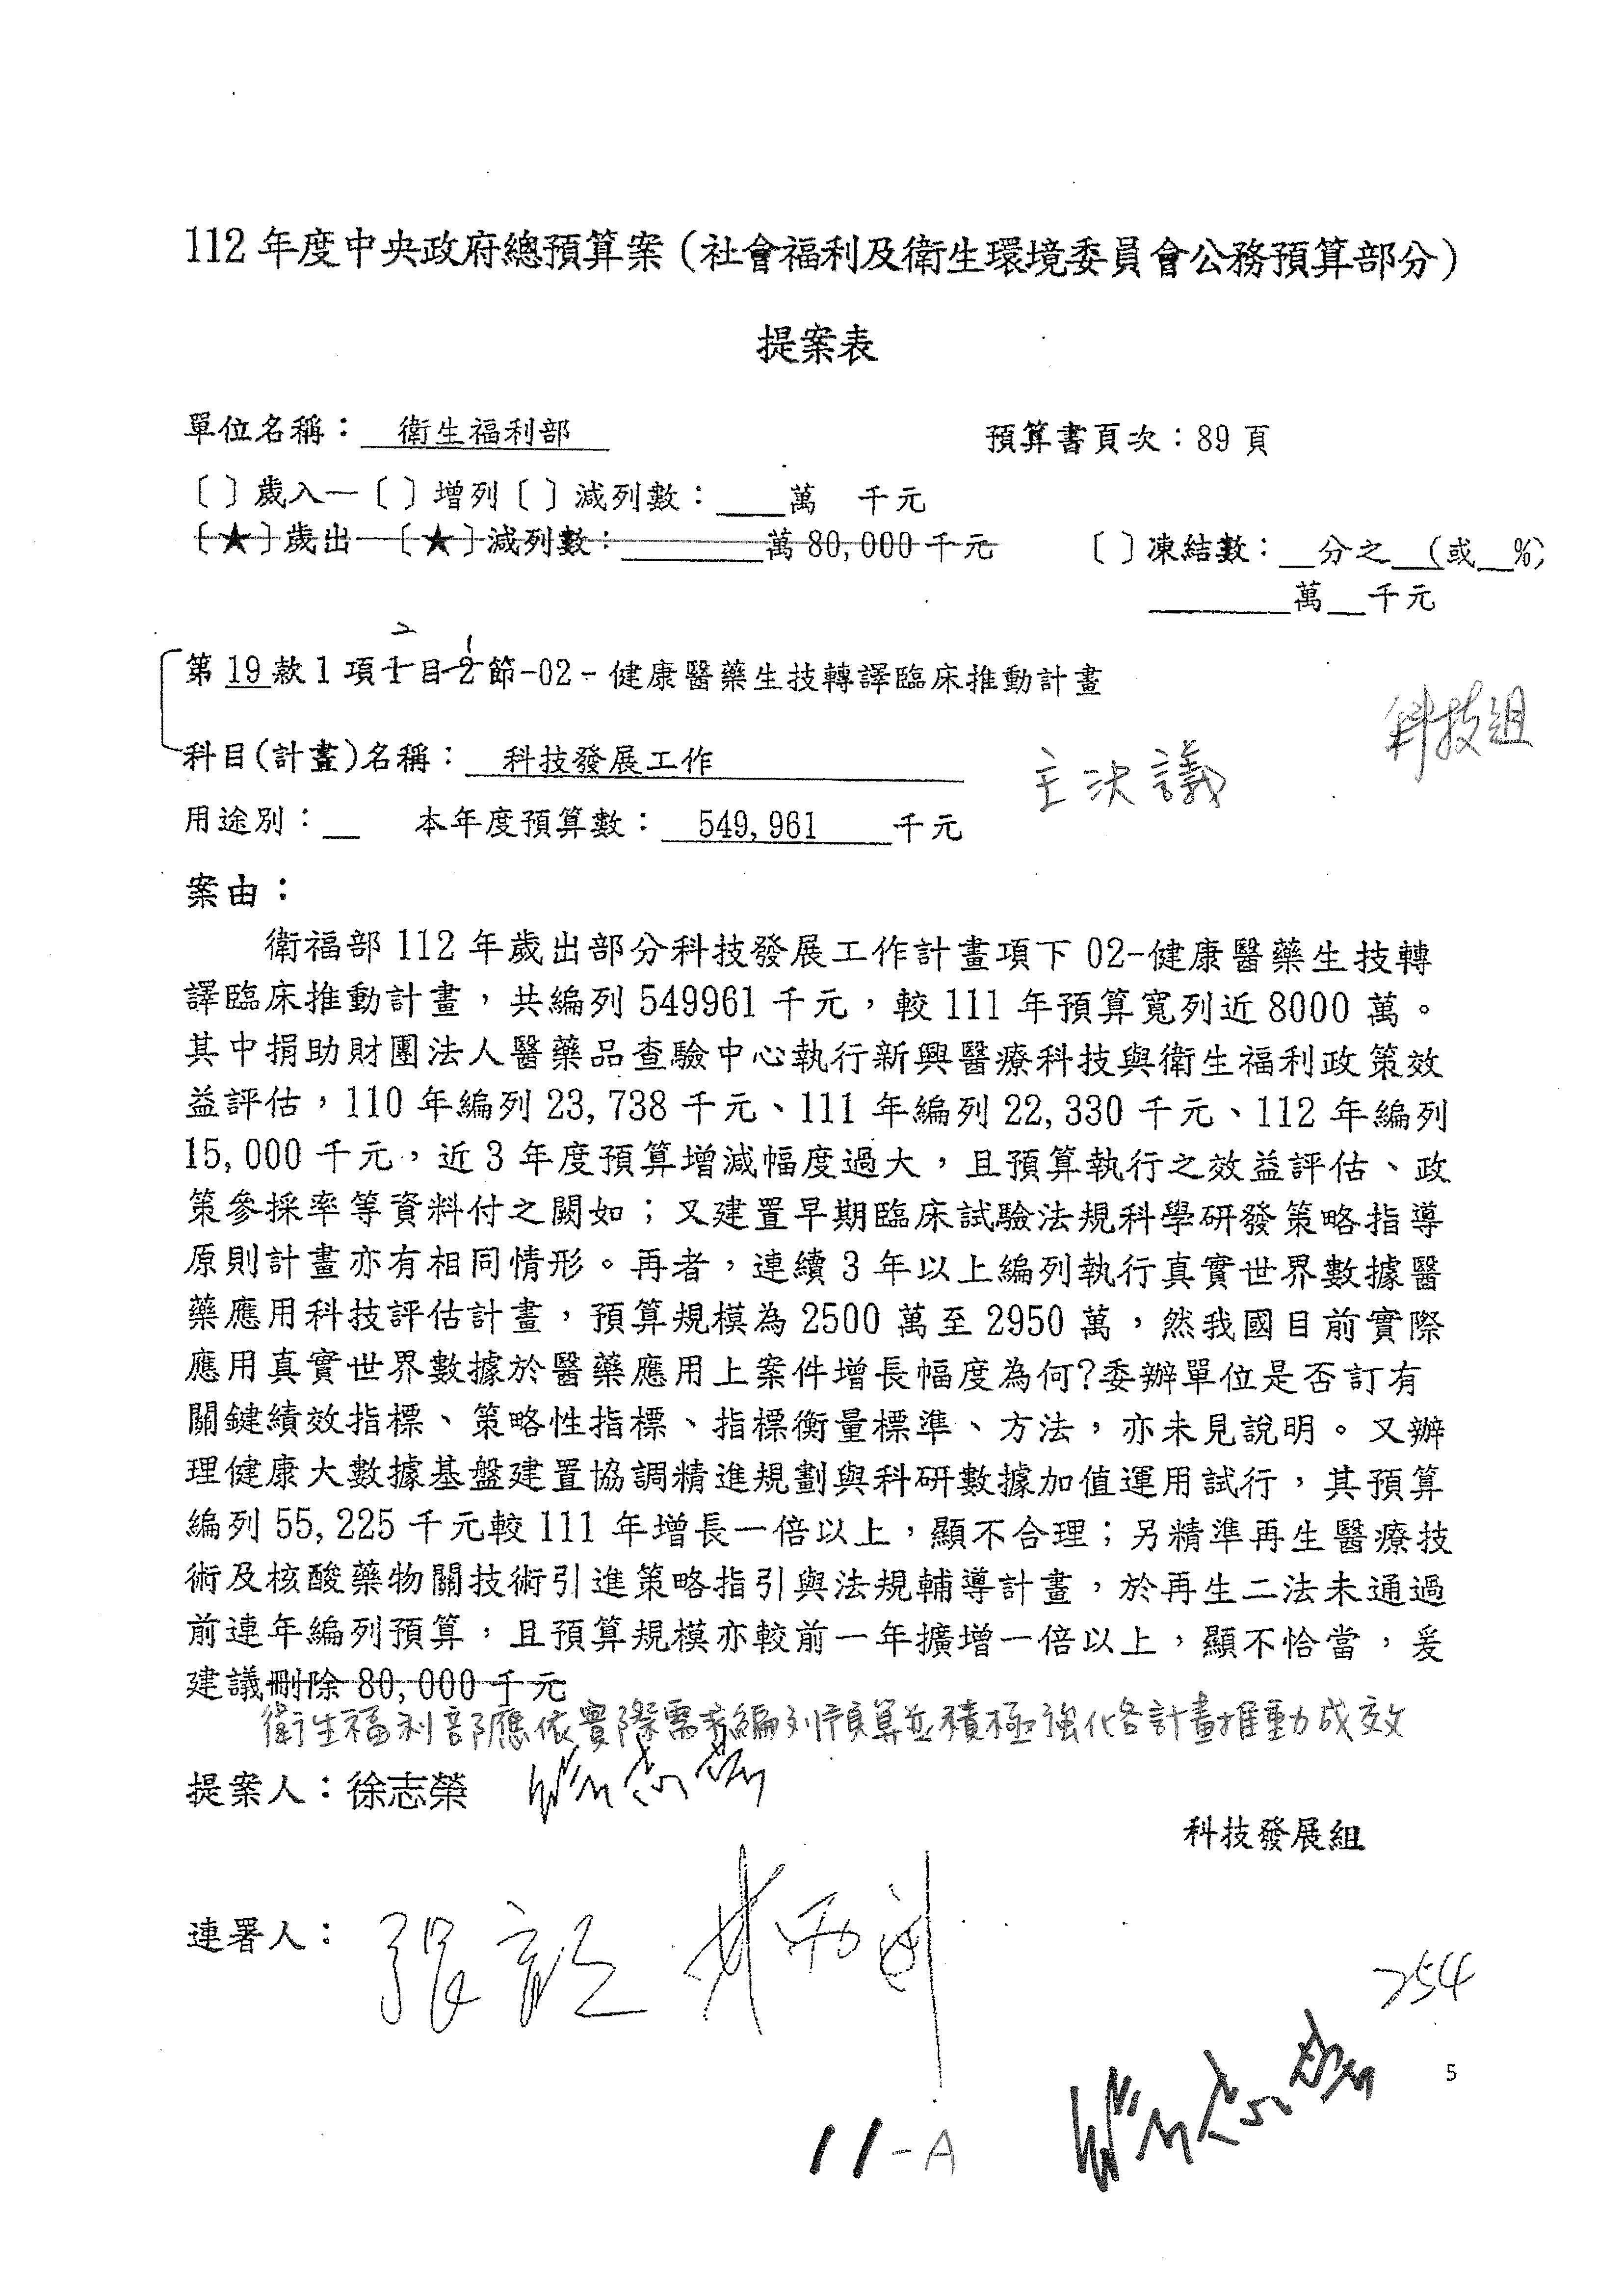 112年度中央政府總預算案(社會福利及衛生環境委員會公務預算部分)
提案表
單位名稱：衛生福利部 預算書頁次：89頁
〔〕歲入－〔〕增列〔〕減列數：____萬 千元
〔★〕歲出－〔★〕減列數：________萬80,000千元 〔〕凍結數：__分之__(或__%)
________萬__千元
2 1
第19款1項1目2節-02-健康醫藥生技轉譯臨床推動計畫
科技組
科目(計畫)名稱：科技發展工作
主決議
用途別：__ 本年度預算數：549,961千元
案由：
衛福部112年歲出部分科技發展工作計畫項下02-健康醫藥生技轉
譯臨床推動計畫，共編列549961千元，較111年預算寬列近8000萬。
其中捐助財團法人醫藥品查驗中心執行新興醫療科技與衛生福利政策效
益評估，110年編列23,738千元、111年編列22,330千元、112年編列
15,000千元，近3年度預算增減幅度過大，且預算執行之效益評估、政
策參採率等資料付之闕如；又建置早期臨床試驗法規科學研發策略指導
原則計畫亦有相同情形。再者，連續3年以上編列執行真實世界數據醫
藥應用科技評估計畫，預算規模為2500萬至2950萬，然我國目前實際
應用真實世界數據於醫藥應用上案件增長幅度為何?委辦單位是否訂有
關鍵績效指標、策略性指標、指標衡量標準、方法，亦未見說明。又辦
理健康大數據基盤建置協調精進規劃與科研數據加值運用試行，其預算
編列55,225千元較111年增長一倍以上，顯不合理；另精準再生醫療技
術及核酸藥物關技術引進策略指引與法規輔導計畫，於再生二法未通過
前連年編列預算，且預算規模亦較前一年擴增一倍以上，顯不恰當，爰
建議刪除80,000千元
衛生福利部應依實際需求編列預算並積極強化各計畫推動成效
提案人：徐志榮 徐志榮
科技發展組
連署人：
254
5
徐志榮
11-A